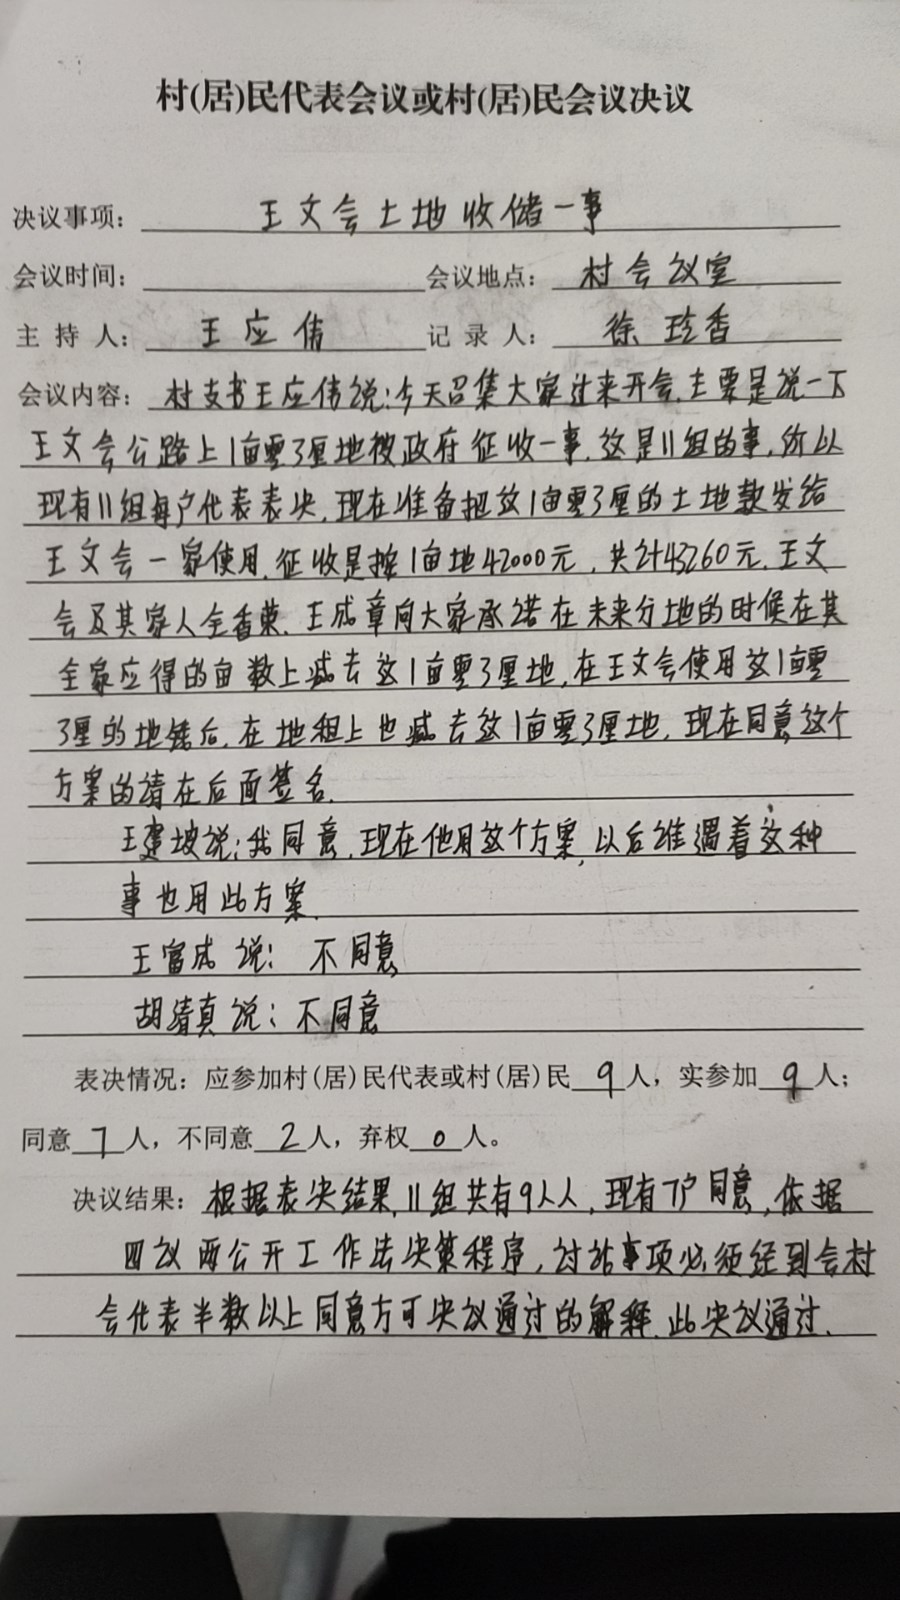 村(居)民代表会议或村(居)民会议决议
决议事项: 王文会土地收储一事
会议时间: 会议地点: 村会议室
主持人: 王应伟 记录人: 徐玲香
会议内容: 村支书王应伟说:今天召集大家过来开会,主要是说一下
王文会公路上1亩零3厘地被政府征收一事,这是11组的事,所以
现有11组每户代表表决,现在准备把这1亩零3厘的土地款发给
王文会一家使用,征收是按1亩地42000元,共计43260元,王文
会及其家人全香荣、王成章向大家承诺在未来分地的时候在其
全家应得的亩数上减去这1亩零3厘地,在王文会使用这1亩零
3厘的地钱后,在地租上也减去这1亩零3厘地,现在同意这个
方案的请在后面签名.
王建坡说:我同意,现在他用这个方案,以后谁遇着这种
事也用此方案.
王富成说: 不同意
胡清真说: 不同意
表决情况: 应参加村(居)民代表或村(居)民9人,实参加9人;
同意7人,不同意2人,弃权0人。
决议结果: 根据表决结果,11组共有9人人,现有7户同意,依据
四议两公开工作法决策程序,讨论事项必须经到会村
会代表半数以上同意方可决议通过的解释,此决议通过.